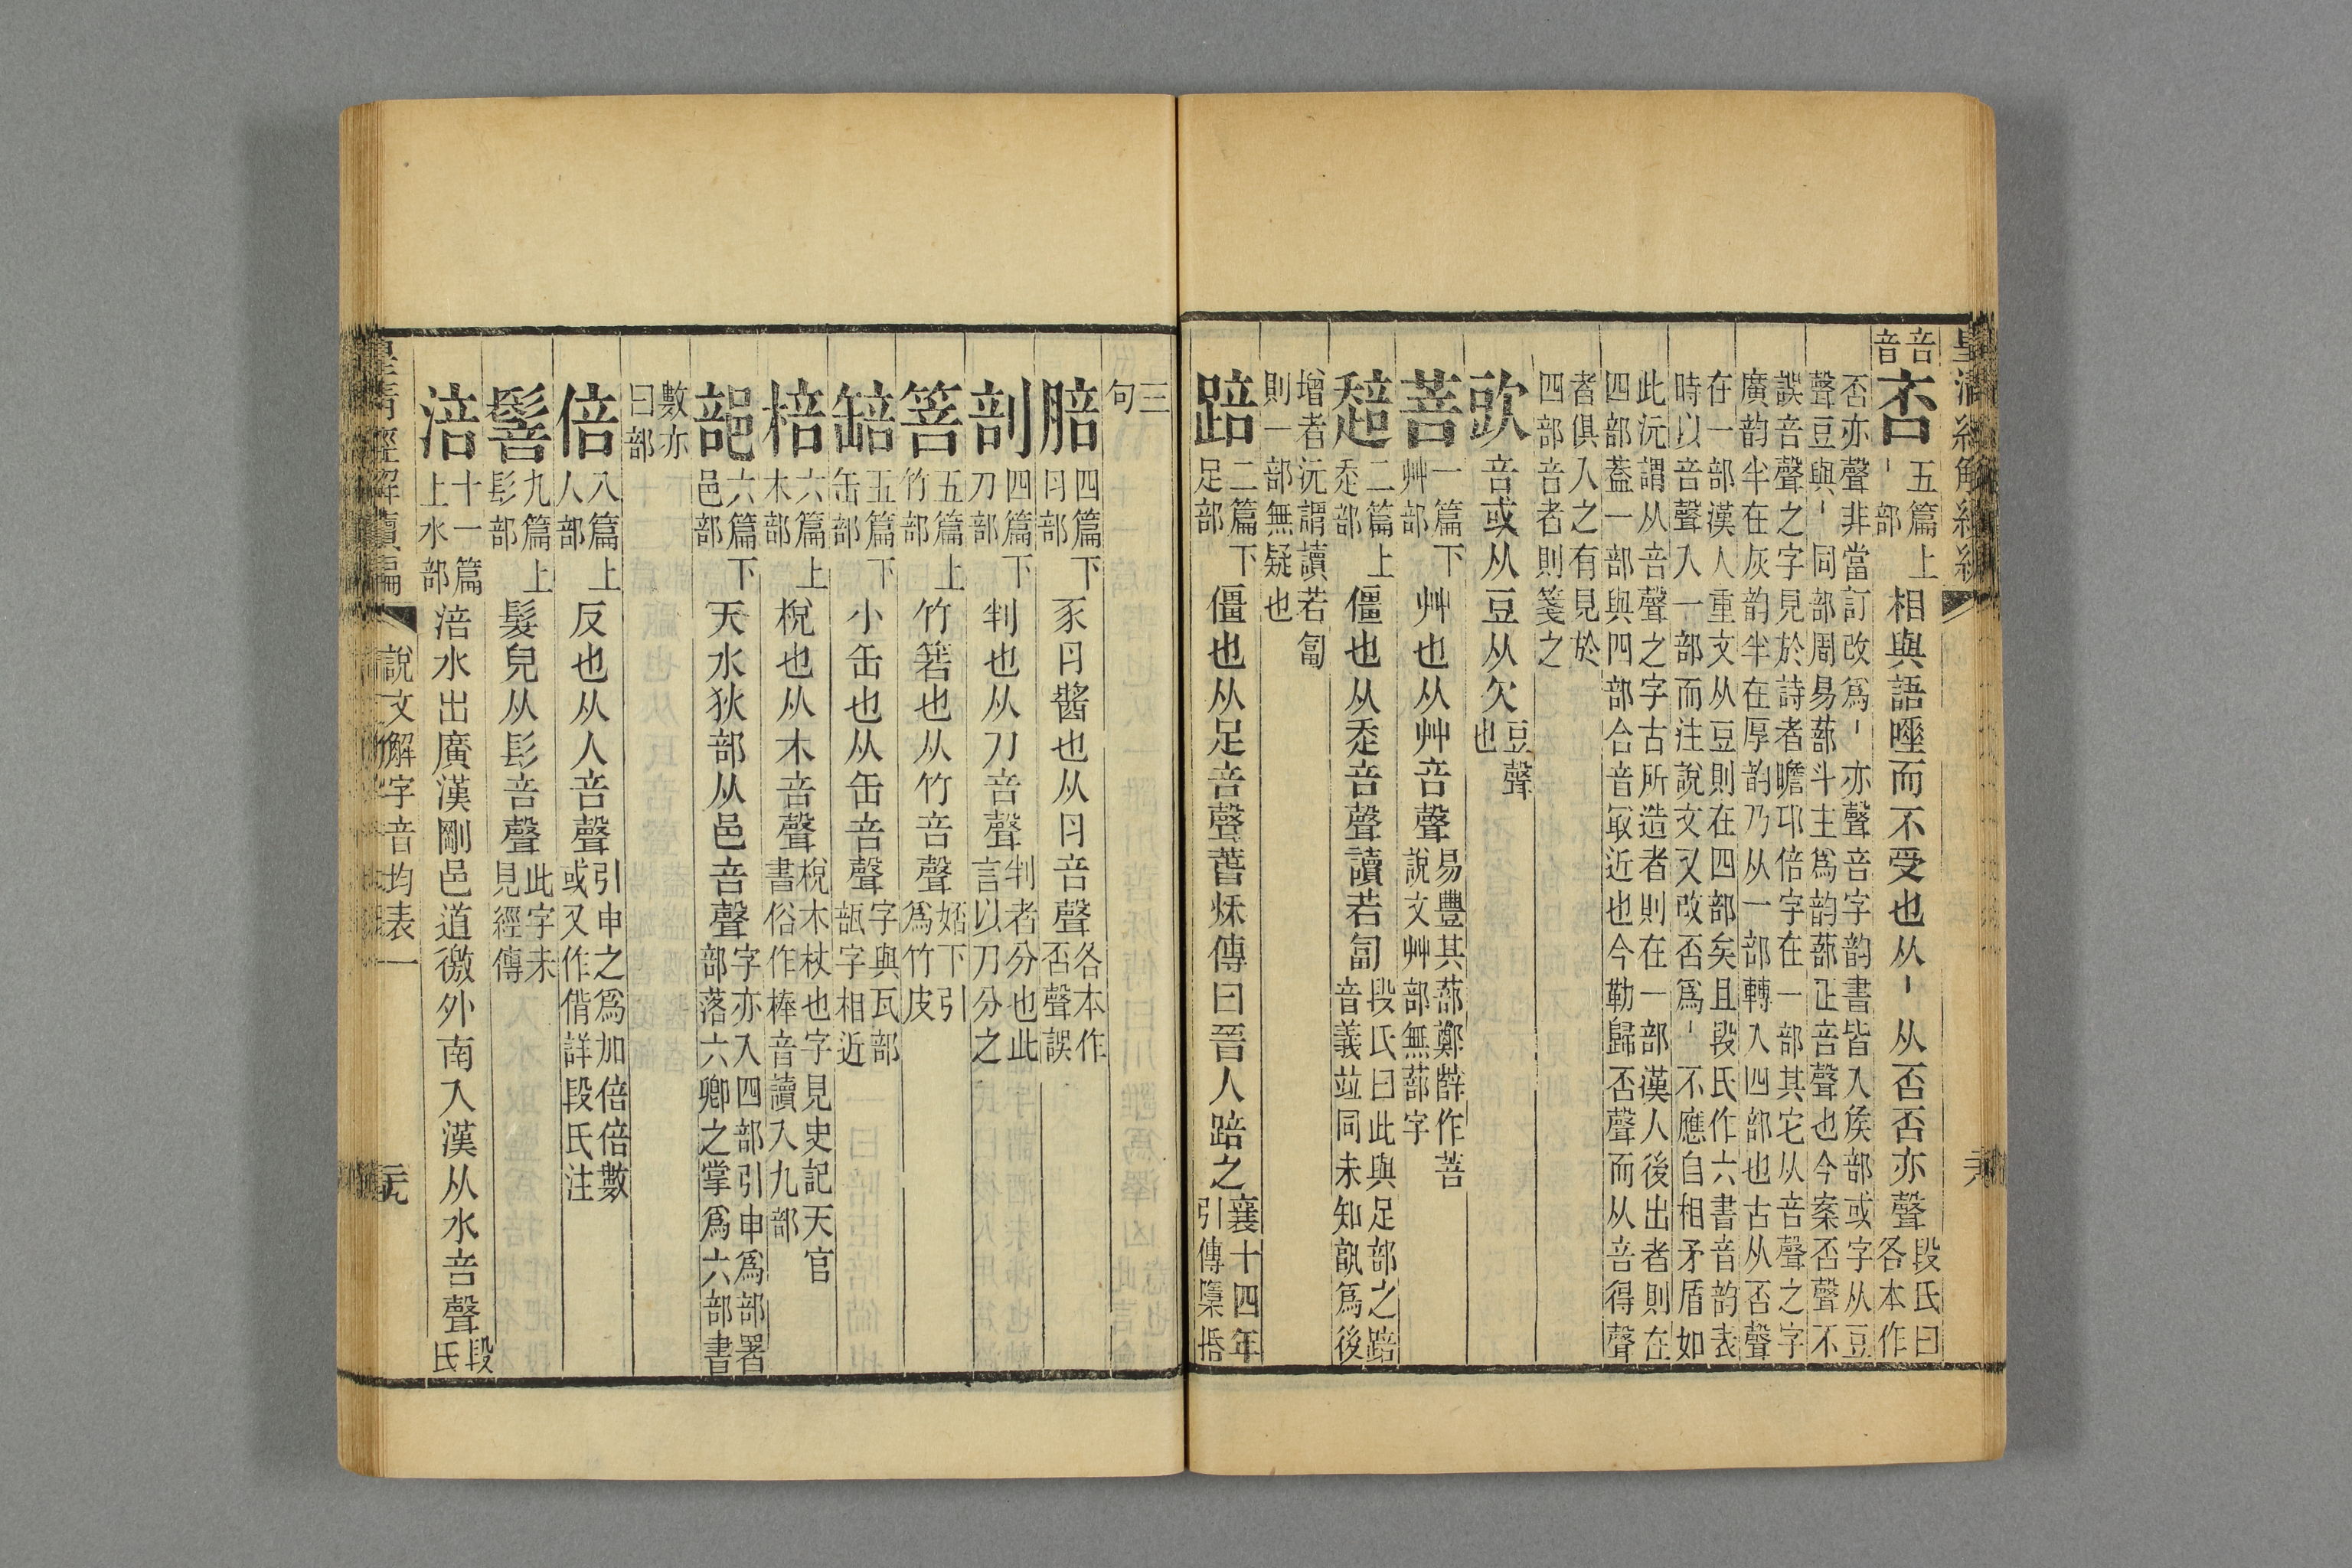 皇清經解續編
音音咅五篇上丶部相與語唾而不受也从丶从否否亦聲段氏曰各本作
否亦聲非當訂改爲丶亦聲音字韵書皆入矦部或字从豆
聲豆與丶同部周易蔀斗主爲韵蔀正音聲也今案否聲不
誤音聲之字見於詩者瞻卬倍字在一部其它从音聲之字
廣韵半在灰韵半在厚韵乃从一部轉入四部也古从否聲
在一部漢人重文从豆則在四部矣且段氏作六書音韵表
時以音聲入一部而注說文又改否爲丶不應自相矛盾如
此沅謂从音聲之字古所造者則在一部漢人後出者則在
四部葢一部與四部合音㝡近也今勒歸否聲而从音得聲
者俱入之有見於
四部音者則箋之
歆音或从豆从欠豆聲也
菩一篇下艸部艸也从艸音聲易豐其蔀鄭薛作菩說文艸部無蔀字
趋二篇上走部僵也从走音聲讀若匐段氏曰此與足部之踣音義竝同未知孰爲後
增者沅謂讀若匐
則一部無疑也
踣二篇下足部僵也从足音聲萅秌傳曰晉人踣之襄十四年引傳檃栝
三
句
腤四篇下肉部豕肉醬也从肉音聲各本作否聲誤
剖四篇下刀部判也从刀音聲判者分也此言以刀分之
箁五篇上竹部竹箬也从竹音聲婄下引爲竹皮
䍌五篇下缶部小缶也从缶音聲字與瓦部瓿字相近
棓六篇上木部梲也从木音聲梲木杖也字見史記天官書俗作棒音讀入九部
部六篇下邑部天水狄部从邑音聲字亦入四部引申爲部署部落六卿之掌爲六部書
數亦
曰部
倍八篇上人部反也从人音聲引申之爲加倍倍數或又作偝詳段氏注
髻九篇上髟部髮皃从髟音聲此字未見經傳
涪十一篇上水部涪水出廣漢剛邑道徼外南入漢从水音聲段氏
皇清經解續編 說文解字音均表一